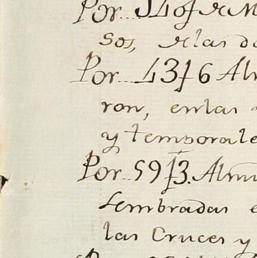 Por
sos, 
Por 4376 Alm
ron, en las
y temporale
Por 5973. Almu
sembradas e
las Cruces y